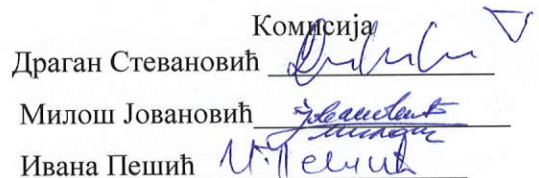 Комисија
Драган Стевановић
Милош Јовановић
Ивана Пешић И. Пешић